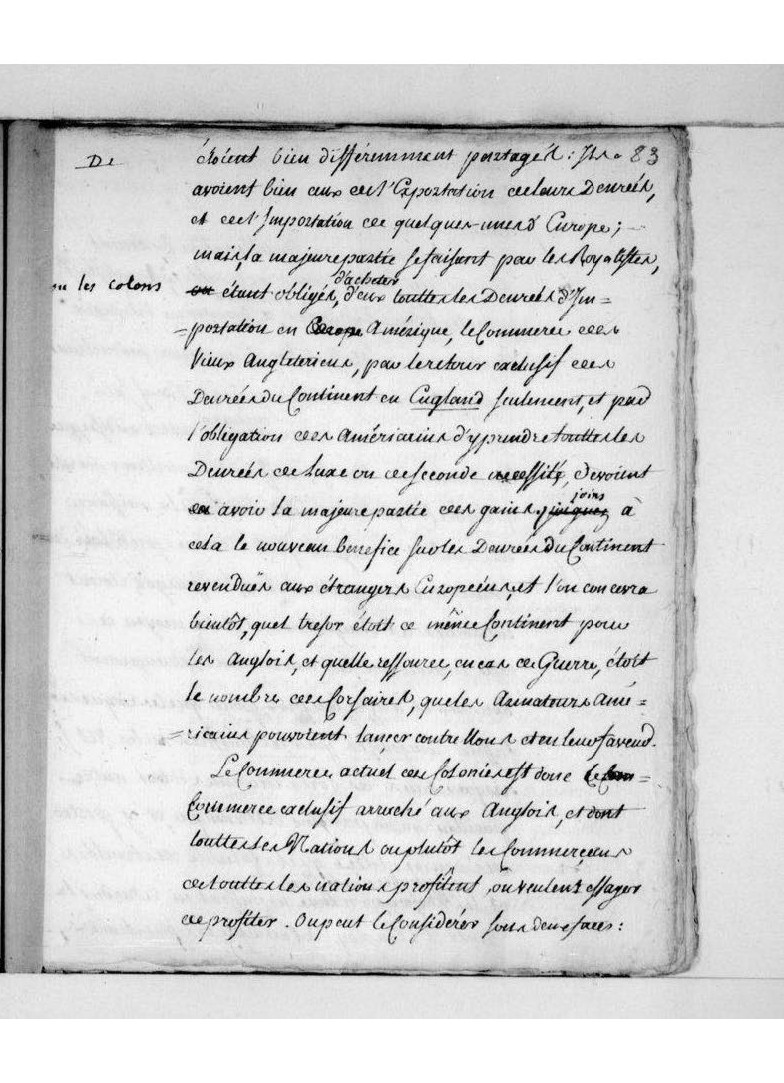 De
étoient bien différemment partagés: Ils 83
avoient bien aux de l'Exportation de leurs Denrées,
et de l'Importation de quelques-unes d'Europe;
mais, la majeure partie se faisant par les Royalistes,
ou les colons
d'acheter
ou étant obligés, d'eux touttes les Denrées d'Im=
=portation en Europe Amérique, le Commerce des
Vieux Angleteriens, par le retour exclusif des
Denrées du Continent en England seulement, et par
l'obligation des Américains d'y prendre touttes les
Denrées de Luxe ou de seconde necessité, devoient
joins
avoir la majeure partie des gains, à
cela le nouveau benefice sur les Denrées du Continent
revenduës aux étrangers Européens, et l'on concevra
bientôt, quel tresor étoit ce même Continent pour
les Anglois, et quelle ressource, en cas de Guerre, étoit
le nombre des Corsaires, que les Armateurs Amé=
=ricains pouvoient lancer contre Nous et en leur faveur.
Le Commerce actuel des Colonies est donc le Com=
Commerce exclusif arraché aux Anglois, et dont
touttes les Nations ou plutôt les Commerçans
de touttes les nations profitent, ou veulent essayer
de profiter. On peut le Considérer sous deux faces: